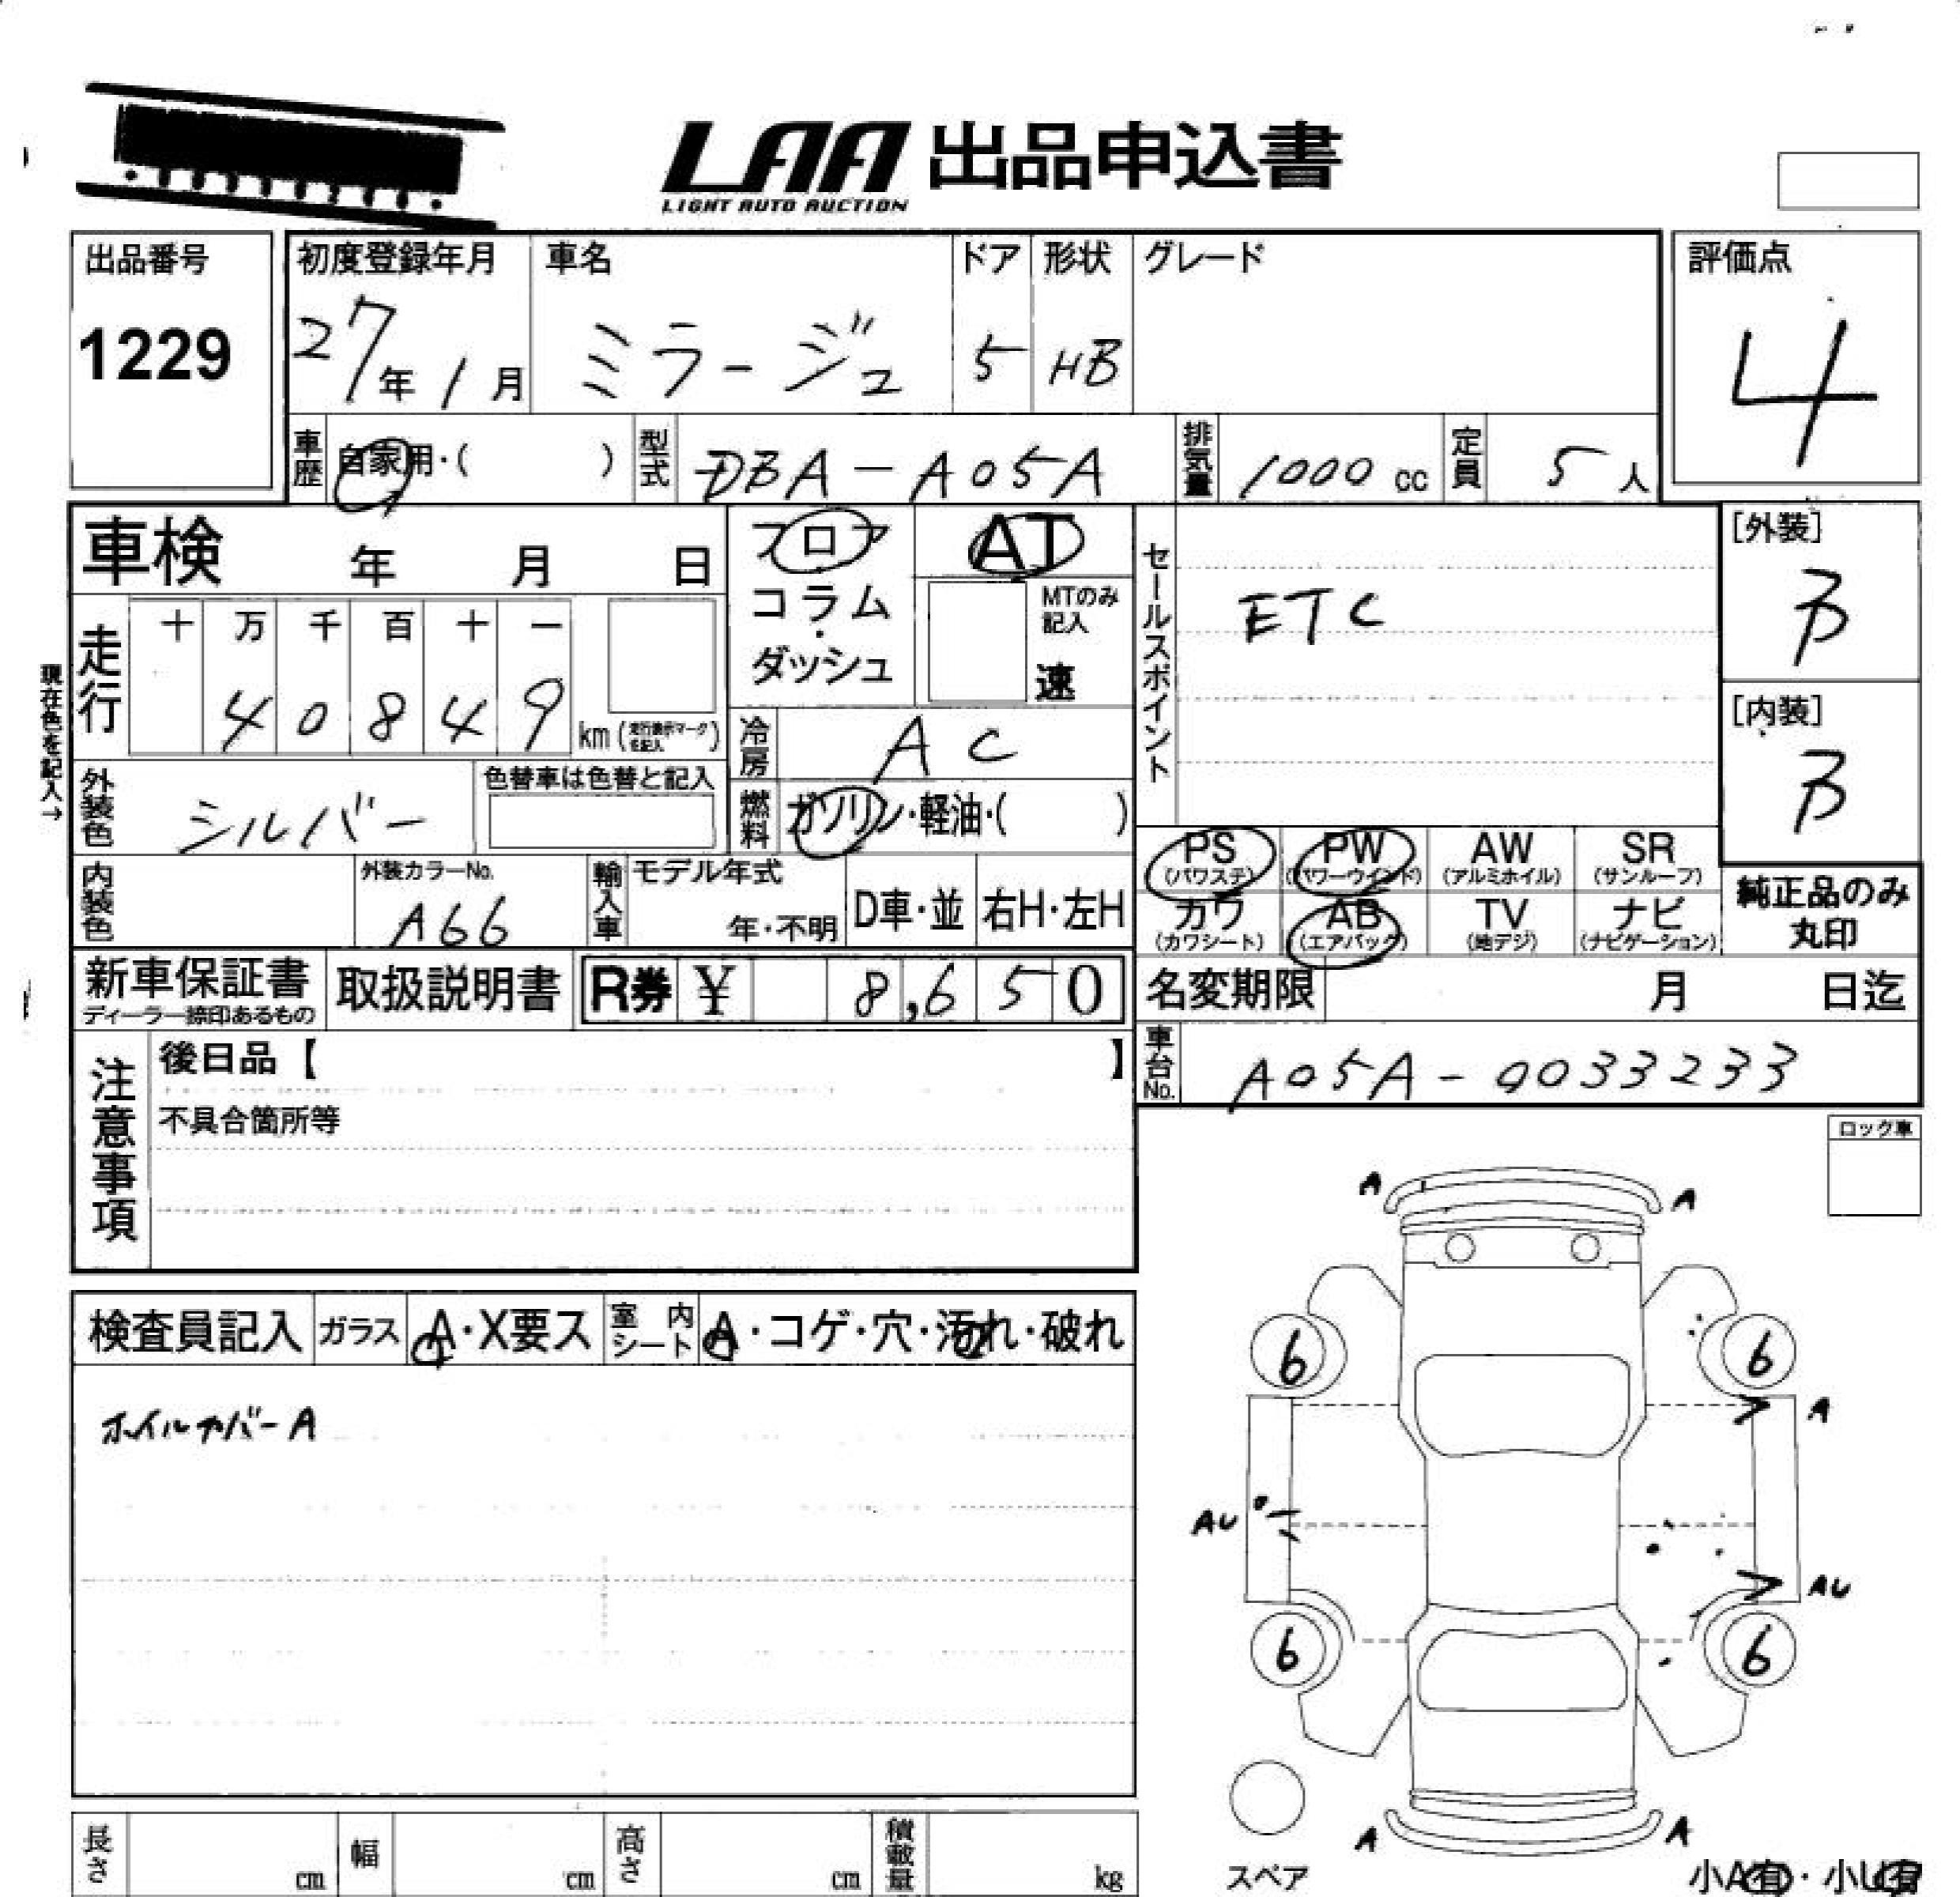 LAA 出品申込書
LIGHT AUTO AUCTION
出品番号
1229
初度登録年月
27年1月
車名
ミラージュ
ドア
5
形状
HB
グレード
評価点
4
車歴
自家用・( )
型式
DBA-A05A
排気量
1000 cc
定員
5人
車検 年 月 日
フロア
コラム・
ダッシュ
AT
MTのみ
記入
速
セールスポイント
ETC
[外装]
B
[内装]
B
現在色を記入→
走行
十 万 千 百 十 一
4 0 8 4 9
km (走行表示マーク
を記入)
冷房
AC
燃料
ガソリン・軽油・( )
外装色
シルバー
色替車は色替と記入
内装色
外装カラーNo.
A66
輸入車
モデル年式
年・不明
D車・並
右H・左H
PS
(パワステ)
PW
(パワーウインド)
AW
(アルミホイル)
SR
(サンルーフ)
カワ
(カワシート)
AB
(エアバッグ)
TV
(地デジ)
ナビ
(ナビゲーション)
純正品のみ
丸印
新車保証書
ディーラー捺印あるもの
取扱説明書
R券 ¥ 8,650
名変期限 月 日迄
車台No.
A05A-0033233
注意事項
後日品【 】
不具合箇所等
ロック車
検査員記入
ガラス
A・X要ス
室内シート
A・コゲ・穴・汚れ・破れ
ホイルカバーA
A A
6 6
A
AU
AU
6 6
A A
スペア
小A有・小U有
長さ cm
幅 cm
高さ cm
積載量 kg